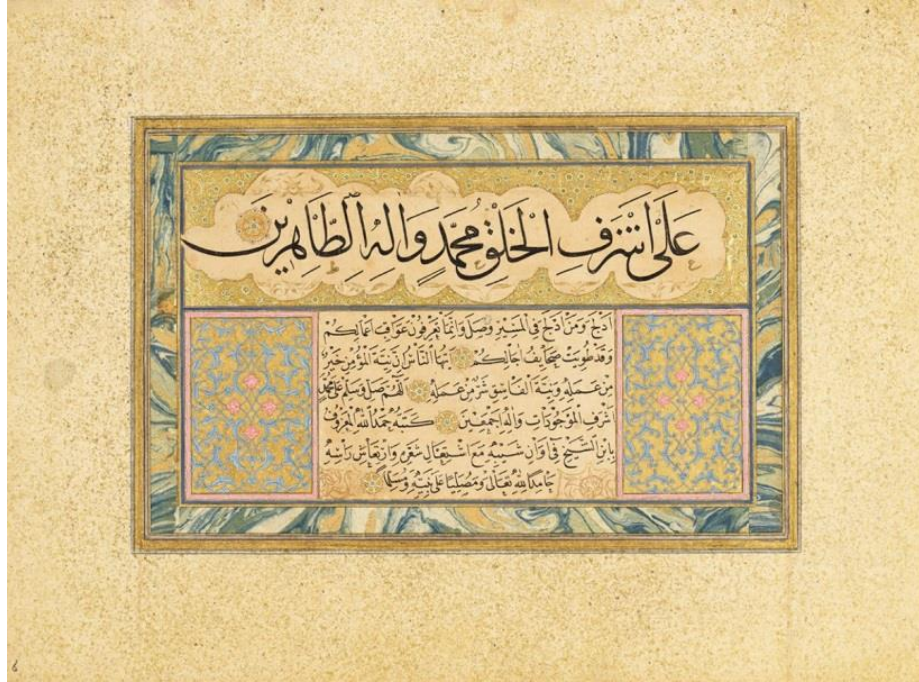 عَلَىٰ اَشْرَفِ الْخَلْقِ مُحَمَّدٍ وَاٰلِهِ الطَّاهِرِينَ
اَدْلَجَ وَمَنْ اَدْلَجَ فِي الْمَسِيْرِ وَصَلَ وَاِنَّمَا تَعْرِفُونَ عَوَاقِبَ اَعْمَالِكُمْ
وَقَدْ طُوِيَتْ صَحَايِفُ اٰجَالِكُمْ يُّهَا النَّاسُ اِنَّ نِيَّةَ الْمُؤْمِنِ خَيْرٌ
مِنْ عَمَلِهِ وَنِيَّةَ الْفَاسِقِ شَرٌّ مِنْ عَمَلِهِ اَللّٰهُمَّ صَلِّ وَسَلِّمْ عَلَى مُحَمَّدٍ
اَشْرَفِ الْمَوْجُودَاتِ وَاٰلِهِ اَجْمَعِيْنَ كَتَبَهُ حَمْدُ اللّٰهِ الْمَعْرُوفُ
بِابْنِ الشَّيْخِ فِي اَوَانِ شَيْبِهِ مَعَ اشْتِعَالِ شَعْرِهِ وَارْتِعَاشِ رَأْسِهِ
حَامِدًا لِلّٰهِ تَعَالَى وَمُصَلِّيًا عَلَى نَبِيِّهِ وَمُسَلِّمًا